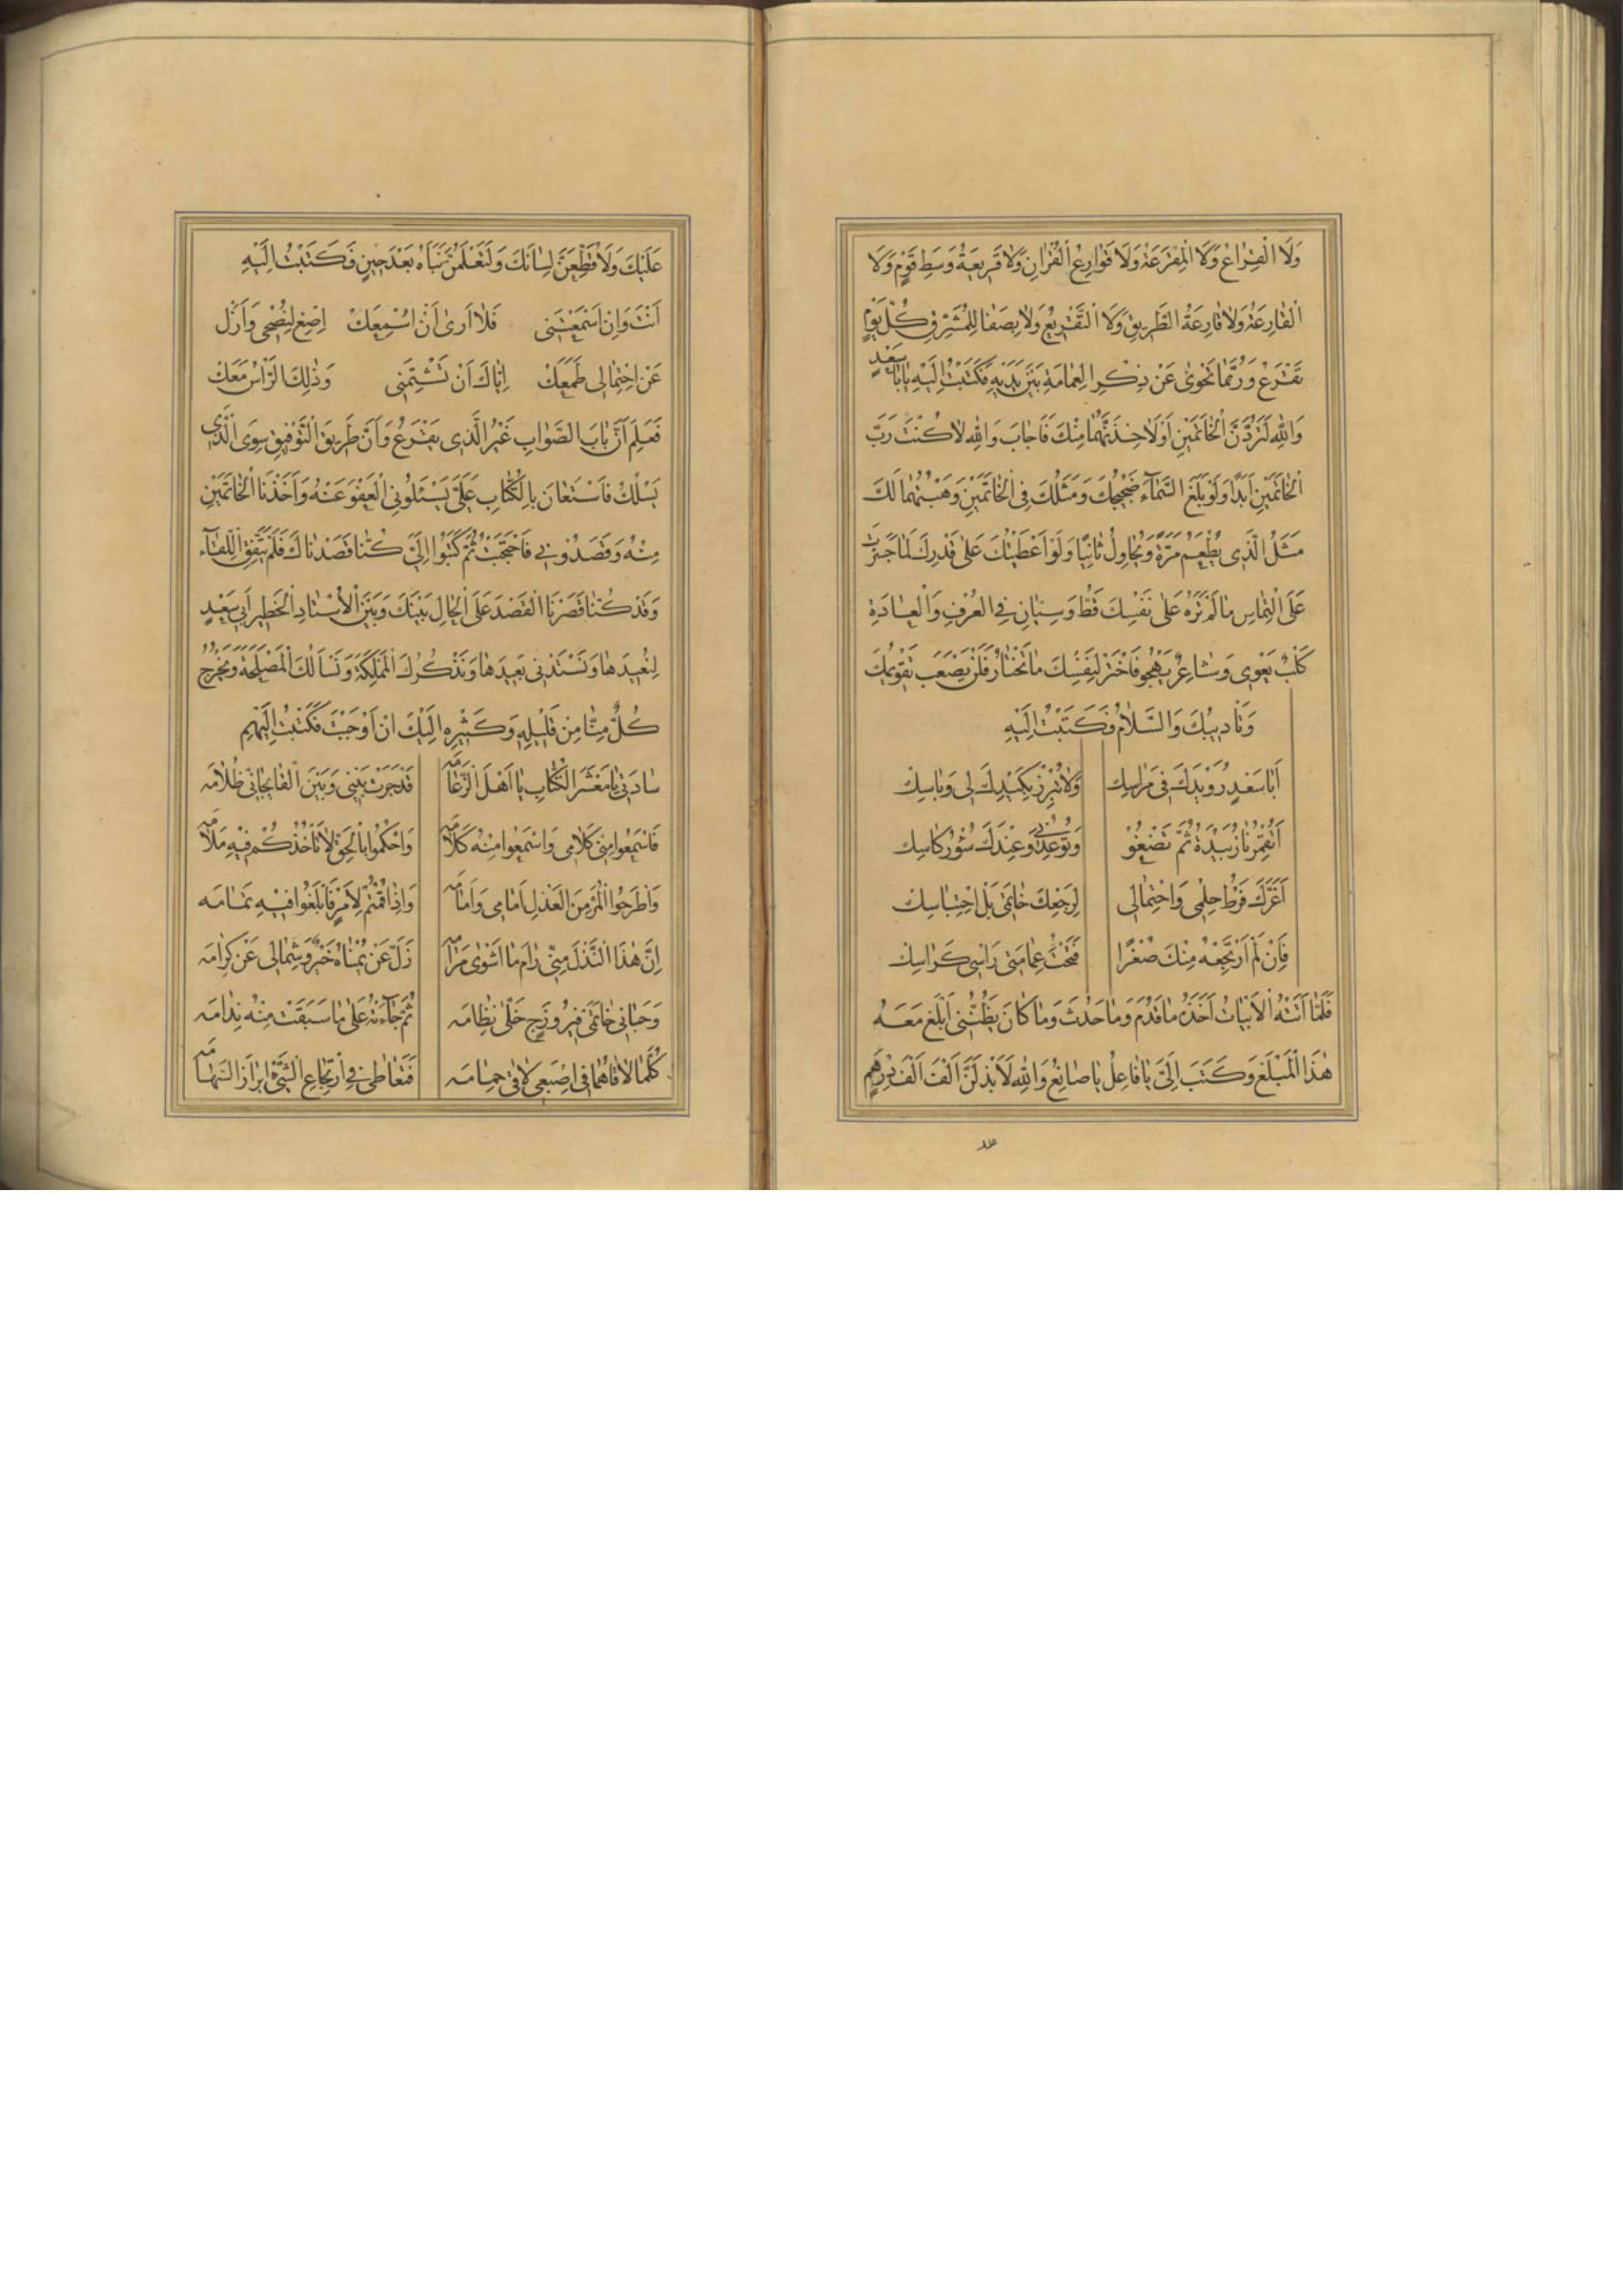 وَلَا الْقِرَاعُ وَلَا الْمِقْرَعَةُ وَلَا قَوَارِعُ الْقُرْاٰنِ وَلَا قَرِيعَةُ وَسَطِ قَوْمٍ وَلَا
الْقَارِعَةُ وَلَا قَارِعَةُ الطَّرِيقِ وَلَا التَّقْرِيعُ وَلَا بِصَفَا الْمُشَرَّقِ كُلَّ يَوْمٍ
تُقْرَعُ وَرُبَّمَا تَحْوِى عَنْ ذِكْرِ الْعِمَامَةِ بَيْنَ يَدَيْهِ فَكَتَبْتُ اِلَيْهِ يَا بَا سَعْدٍ
وَاللّٰهِ لَتَرُدَّنَّ الْخَاتَمَيْنِ اَوْ لَاَخِذَنَّهُمَا مِنْكَ فَاَجَابَ وَاللّٰهِ لَا كُنْتَ رَبَّ
الْخَاتَمَيْنِ اَبَدًا وَلَوْ بَلَغَ السَّمَآءَ ضَجِيجُكَ وَمَثَلُكَ فِى الْخَاتَمَيْنِ وَهَبْتُهُمَا لَكَ
مَثَلُ الَّذِى يُطْعَمُ مَرَّةً وَيُحَاوِلُ ثَانِيًا وَلَوْ اَعْطَيْتُكَ عَلٰى قَدْرِكَ لَمَا جَسَرْتَ
عَلَى الْتِمَاسِ مَا لَمْ تَرَهُ عَلٰى نَفْسِكَ قَطُّ وَسِيَّانِ فِى الْعُرْفِ وَالْعَادَةِ
كَلْبٌ يَعْوِى وَشَاعِرٌ يَهْجُو فَاخْتَرْ لِنَفْسِكَ مَا تَخْتَارُ فَلَنْ يَصْعَبَ تَقْوِيمُكَ
وَتَأْدِيبُكَ وَالسَّلَامُ فَكَتَبْتُ اِلَيْهِ
اَبَا سَعْدٍ رُوَيْدَكَ فِى مِرَاسِك وَلَا تُبْرِزْ بِكَيْدِكَ لِى وَبَاسِك
ثُمَّ تَصْغُو وَتُوعِدُنِى وَعِنْدَكَ سُؤْرُ كَاسِك
اَغَرَّكَ فَرْطُ حِلْمِى وَاحْتِمَالِى لِرَجْعِكَ خَاتَمَىَّ بَلِ احْتِبَاسِك
فَاِنْ لَمْ اَرْتَجِعْهُ مِنْكَ صُغْرًا فَتَحْتَ عِمَامَتِى رَاْسِى كَرَاسِك
فَلَمَّا اَتَتْهُ الْاَبْيَاتُ اَخَذَهُ مَا قَدُمَ وَمَا حَدُثَ وَمَا كَانَ يَظُنُّنِى اَبْلُغُ مَعَهُ
هٰذَا الْمَبْلَغَ وَكَتَبَ اِلَىَّ يَا فَاعِلُ يَا صَانِعُ وَاللّٰهِ لَاَبْذِلَنَّ اَلْفَ اَلْفِ دِرْهَمٍ
عَلَيْكَ وَلَاَقْطَعَنَّ لِسَانَكَ وَلَتَعْلَمُنَّ نَبَاَهُ بَعْدَ حِينٍ فَكَتَبْتُ اِلَيْهِ
اَنْتَ وَاِنْ اَسْمَعْتَنِى فَلَا اَرٰى اَنْ اُسْمِعَكْ اِصْغِ لِنُصْحِى وَاَزِلْ
عَنِ احْتِمَالِى طَمَعَكْ اِيَّاكَ اَنْ تَشْتِمَنِى وَذٰلِكَ الرَّاْسُ مَعَكْ
فَعَلِمَ اَنَّ بَابَ الصَّوَابِ غَيْرُ الَّذِى يَقْرَعُ وَاَنَّ طَرِيقَ التَّوْفِيقِ سِوَى الَّذِى
يَسْلُكُ فَاسْتَعَانَ بِالْكُتَّابِ عَلَىَّ يَسْئَلُونِى الْعَفْوَ عَنْهُ وَاَخْذَنَا الْخَاتَمَيْنِ
مِنْهُ وَقَصَدُونِى فَاحْتَجَبْتُ ثُمَّ كَتَبُوا اِلَىَّ كُنَّا قَصَدْنَاكَ فَلَمْ يَتَّفِقِ اللِّقَآءُ
وَقَدْ كُنَّا قَصَرْنَا الْقَصْدَ عَلَى الْحَالِ بَيْنَكَ وَبَيْنَ الْاُسْتَادِ الْخَطِيرِ اَبِى سَعْدٍ
لِنُعِيدَهَا وَنَسْتَدْنِى بَعِيدَهَا وَنَذْكُرُكَ الْمَمْلَكَةَ وَنَسْاَلُكَ الْمَصْلَحَةَ وَيَخْرُجُ
كُلٌّ مِنَّا مِنْ قَلِيلِهِ وَكَثِيرِهِ اِلَيْكَ اِنْ اَوْجَبْتَ فَكَتَبْتُ اِلَيْهِمْ
سَادَتِى يَا مَعْشَرَ الْكُتَّابِ يَا اَهْلَ الزَّعَامَه قَدْ جَرَتْ بَيْنِى وَبَيْنَ ظُلَامَه
فَاسْمَعُوا مِنِّى كَلَامِى وَاسْمَعُوا مِنْهُ كَلَامَه وَاحْكُمُوا بِالْحَقِّ لَا تَاْخُذْكُمُ فِيهِ مَلَامَه
وَاطْرَحُوا الْمُرَّ مِنَ الْعَذْلِ اَمَامِى وَاَمَامَه وَاِذَا قُمْتُمْ لِاَمْرٍ فَابْلُغُوا فِيهِ تَمَامَه
اِنَّ هٰذَا النَّذْلَ مِنِّى رَامَ مَا اَشْوٰى مَرَامَه زَلَّ عَنْ يُمْنَاهُ خَيْرٌ وَشِمَالِى عَنْ كَرَامَه
وَحَبَانِى خَاتَمَىْ فَيْرُوزَجٍ حَلَّى نِظَامَه ثُمَّ جَآءَتْهُ عَلٰى مَا سَبَقَتْ مِنْهُ نَدَامَه
كُلَّمَا لَاقَاهُمَا فِى اِصْبَعِى لَاقٰى حِمَامَه فَتَعَاطٰى فِى ارْتِجَاعِ الشَّىْءِ اِبْرَازَ الشَّهَامَه